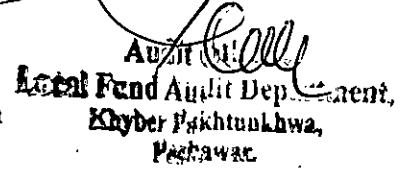 Audit
Local Fund Audit Department,
Khyber Pakhtunkhwa,
Peshawar.